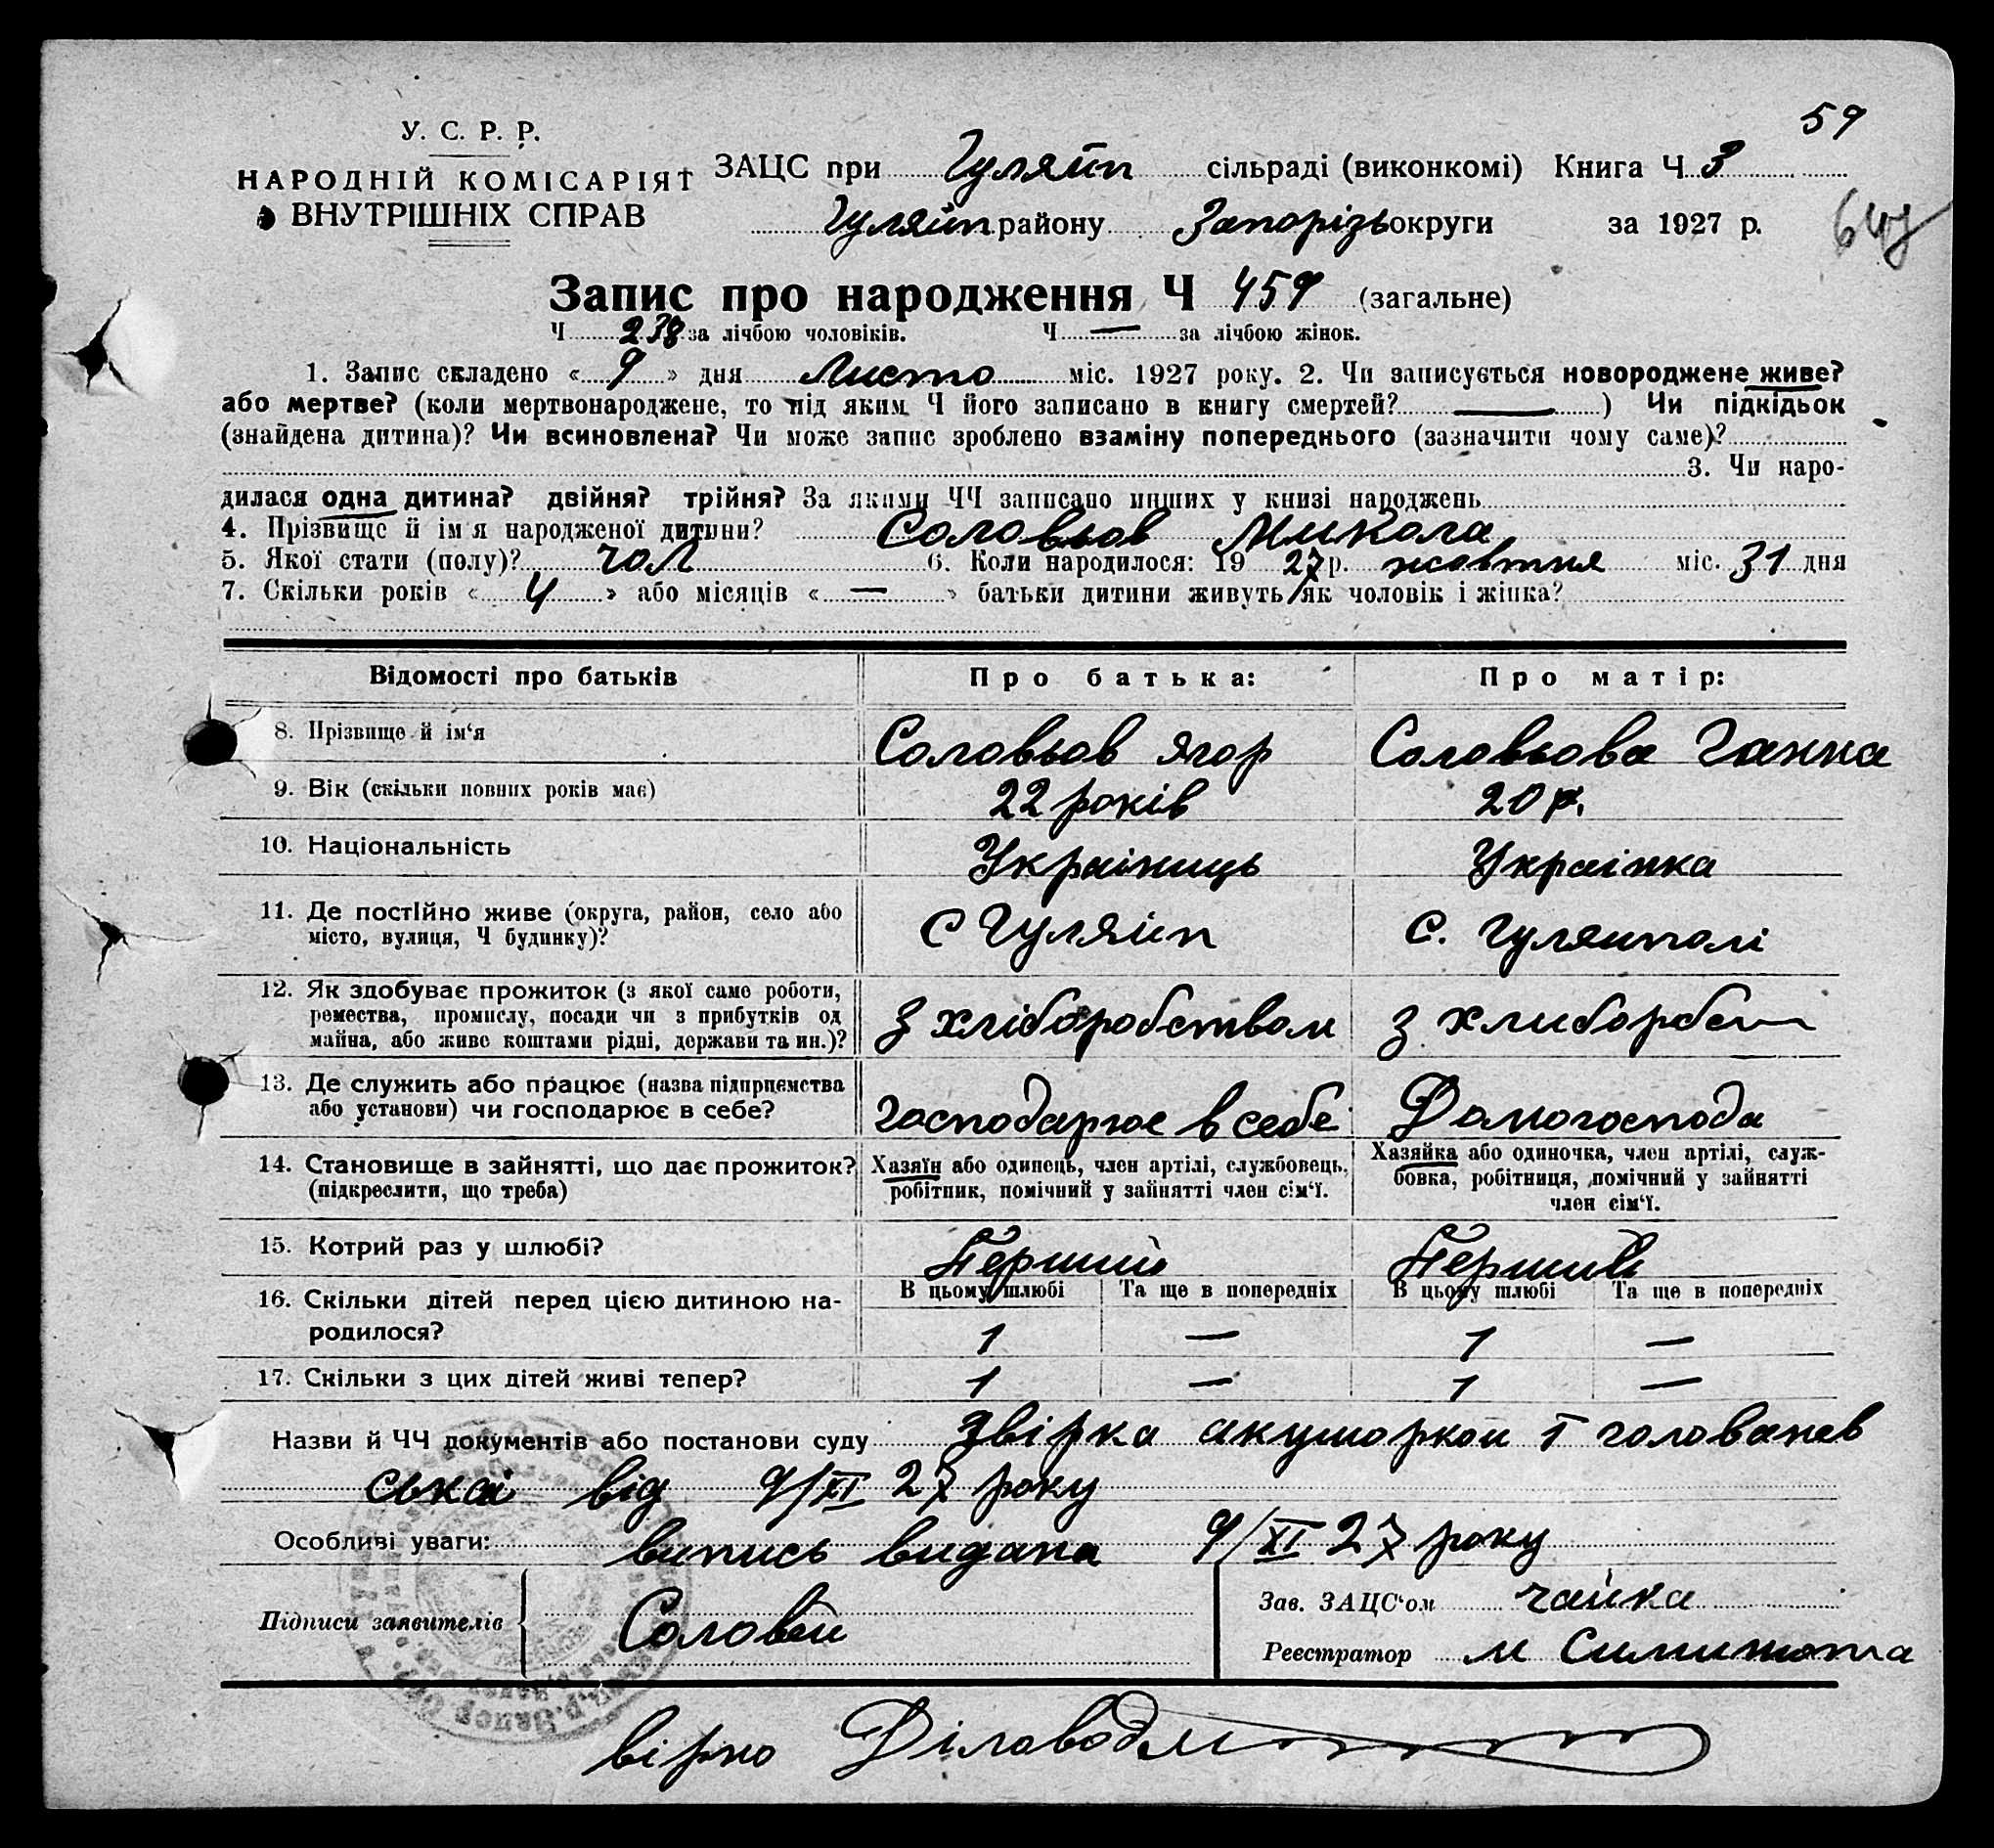 59
У. С. Р. Р.
НАРОДНІЙ КОМІСАРІЯТ
ВНУТРІШНІХ СПРАВ
ЗАЦС при Гуляйп сільраді (виконкомі) Книга Ч 3
Гуляйп району Запорізь округи за 1927 р.
Запис про народження Ч 459 (загальне)
Ч 238 за лічбою чоловіків. Ч — за лічбою жінок.
1. Запис складено «9» дня Листо міс. 1927 року. 2. Чи записується новороджене живе?
або мертве? (коли мертвонароджене, то під яким Ч його записано в книгу смертей? —) Чи підкідьок
(знайдена дитина)? Чи всиновлена? Чи може запис зроблено взаміну попереднього (зазначити чому саме)?
3. Чи наро-
дилася одна дитина? двійня? трійня? За якими ЧЧ записано инших у книзі народжень
4. Прізвище й ім'я народженої дитини? Соловьов Микола
5. Якої стати (полу)? чол 6. Коли народилося: 1927 р. жовтня міс. 31 дня
7. Скільки років «4» або місяців «—» батьки дитини живуть як чоловік і жінка?
Відомості про батьків Про батька: Про матір:
8. Прізвище й ім'я Соловьов Ягор Соловьова Ганна
9. Вік (скільки повних років має) 22 років 20 р.
10. Національність Украіниць Украінка
11. Де постійно живе (округа, район, село або
місто, вулиця, Ч будинку)? С Гуляйп С. Гуляиполі
12. Як здобуває прожиток (з якої само роботи,
ремества, промислу, посади чи з прибутків од
майна, або живе коштами рідні, держави та ин.)? З хліборобством З хлибороб
13. Де служить або працює (назва підприємства
або установи) чи господарює в себе? господарює в себе Домогоспода
14. Становище в зайнятті, що дає прожиток?
(підкреслити, що треба)
Хазяїн або одинець, член артілі, службовець,
робітник, помічний у зайнятті член сім'ї.
Хазяйка або одиночка, член артілі, служ-
бовка, робітниця, помічний у зайнятті
член сім'ї.
15. Котрий раз у шлюбі? Перший Перший
В цьому шлюбі Та ще в попередніх В цьому шлюбі Та ще в попередніх
16. Скільки дітей перед цією дитиною на-
родилося? 1 — 1 —
17. Скільки з цих дітей живі тепер? 1 — 1 —
Назви й ЧЧ документів або постанови суду звірка акушоркои голованев
ськаі від 9/XI 27 року
Особливі уваги: випись видана 9/XI 27 року
Підписи заявителів Соловьй
Зав. ЗАЦС'ом чайка
Реєстратор М
вірно Діловод